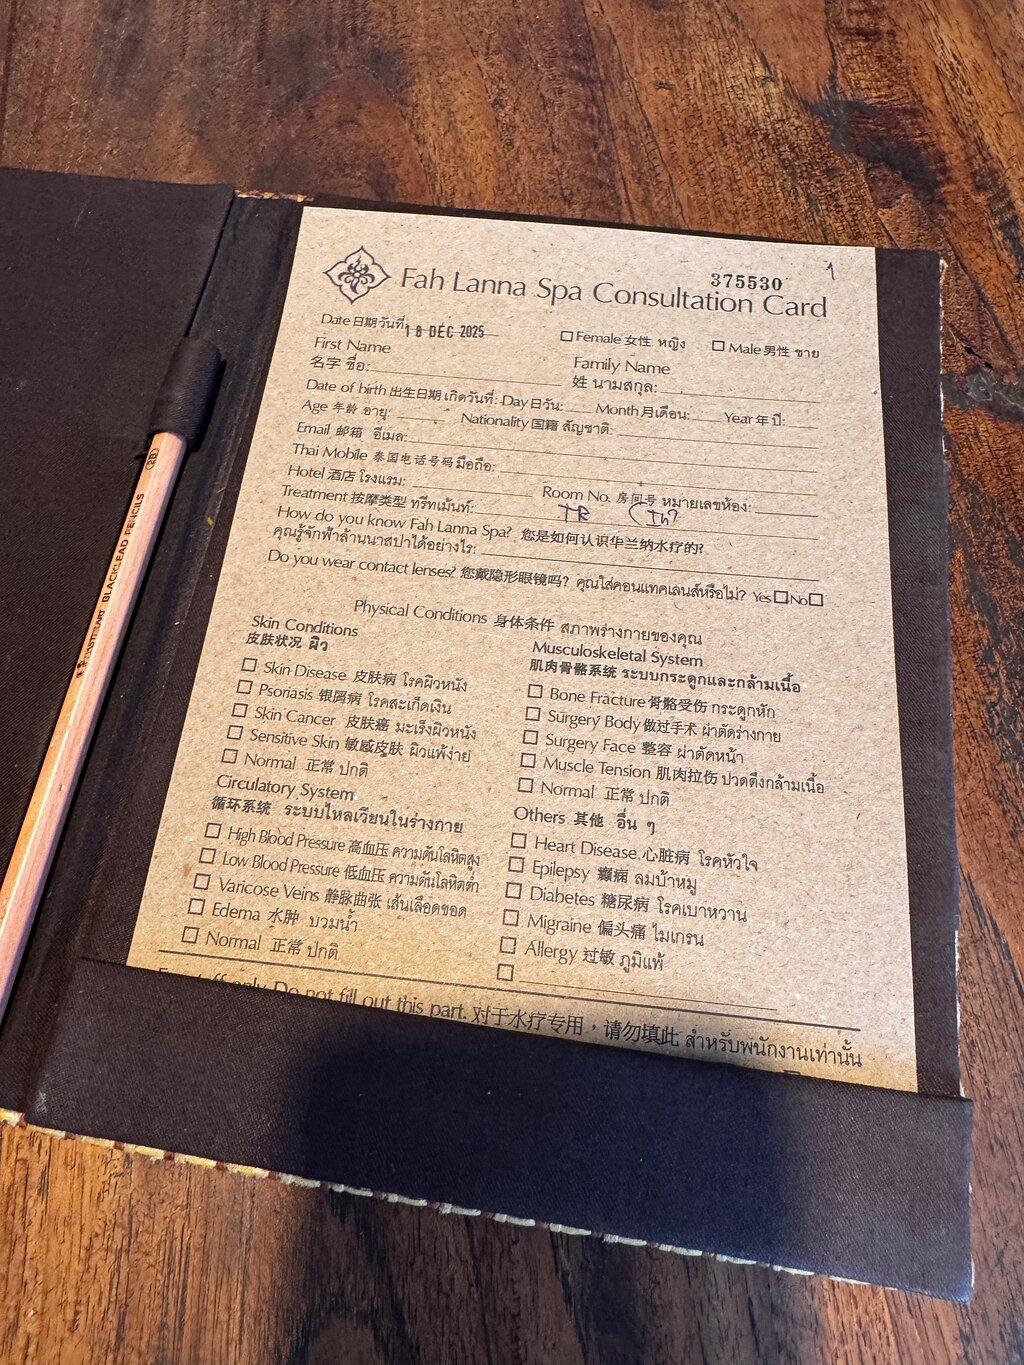 375530
1
Fah Lanna Spa Consultation Card
Date 日期 วันที่ 18 DEC 2025
Female 女性 หญิง Male 男性 ชาย
First Name
名字 ชื่อ:
Family Name
姓 นามสกุล:
Date of birth 出生日期 เกิดวันที่: Day 日 วัน: Month 月 เดือน: Year 年 ปี:
Age 年龄 อายุ: Nationality 国籍 สัญชาติ:
Email 邮箱 อีเมล:
Thai Mobile 泰国电话号码 มือถือ:
Hotel 酒店 โรงแรม: Room No. 房间号 หมายเลขห้อง:
Treatment 按摩类型 ทรีทเม้นท์: TR
How do you know Fah Lanna Spa? 您是如何认识华兰纳水疗的?
คุณรู้จักฟ้าล้านนาสปาได้อย่างไร:
Do you wear contact lenses? 您戴隐形眼镜吗? คุณใส่คอนแทคเลนส์หรือไม่? Yes No
Physical Conditions 身体条件 สภาพร่างกายของคุณ
Skin Conditions
皮肤状况 ผิว
Skin Disease 皮肤病 โรคผิวหนัง
Psoriasis 银屑病 โรคสะเก็ดเงิน
Skin Cancer 皮肤癌 มะเร็งผิวหนัง
Sensitive Skin 敏感皮肤 ผิวแพ้ง่าย
Normal 正常 ปกติ
Circulatory System
循环系统 ระบบไหลเวียนในร่างกาย
High Blood Pressure 高血压 ความดันโลหิตสูง
Low Blood Pressure 低血压 ความดันโลหิตต่ำ
Varicose Veins 静脉曲张 เส้นเลือดขอด
Edema 水肿 บวมน้ำ
Normal 正常 ปกติ
Musculoskeletal System
肌肉骨骼系统 ระบบกระดูกและกล้ามเนื้อ
Bone Fracture 骨骼受伤 กระดูกหัก
Surgery Body 做过手术 ผ่าตัดร่างกาย
Surgery Face 整容 ผ่าตัดหน้า
Muscle Tension 肌肉拉伤 ปวดตึงกล้ามเนื้อ
Normal 正常 ปกติ
Others 其他 อื่น ๆ
Heart Disease 心脏病 โรคหัวใจ
Epilepsy 癫痫 ลมบ้าหมู
Diabetes 糖尿病 โรคเบาหวาน
Migraine 偏头痛 ไมเกรน
Allergy 过敏 ภูมิแพ้
For staff only. Do not fill out this part. 对于水疗专用，请勿填此 สำหรับพนักงานเท่านั้น
BLACKLEAD PENCILS (2B)